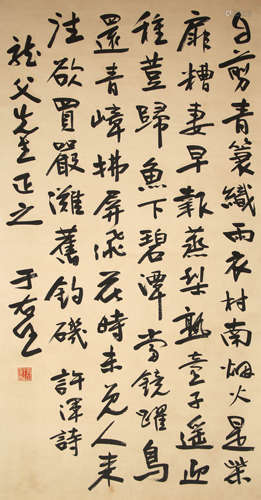 自剪青蓑織雨衣村南烟火是柴
扉糟妻早報蒸梨熟童子遥迎
種荳歸魚下碧潭當鏡躍鳥
還青嶂拂屏飛花時未免人來
往欲買嚴灘舊釣磯 許渾詩
父先生正之 于右任